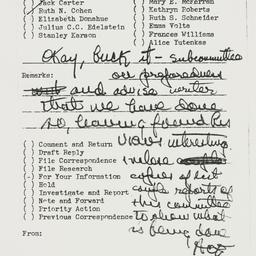 ( ) Jack Carter
( ) Mary E. McFerren
( ) Ruth N. Cohen
( ) Kathryn Roberts
( ) Elizabeth Donahue
( ) Ruth S. Schneider
( ) Julius C.C. Edelstein
( ) Emma Volta
( ) Stanley Karson
( ) Frances Williams
( ) Alice Yutenkas
Okay, buck it - subcommittee
Remarks:
on preparedness
and advise writer
that we have done
so, having found his
views interesting.
( ) Comment and Return
( ) Draft Reply
( ) File Correspondence
( ) File Research
( ) For Your Information
( ) Hold
( ) Investigate and Report
( ) Note and Forward
( ) Priority Action
( ) Previous Correspondence
copies of
reports of
this committee
to show what
is being done
From: